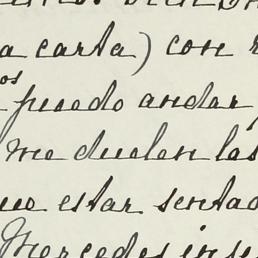 a carta) con
os
puedo andar,
me duelen las
estar sentad
Mercedes inse